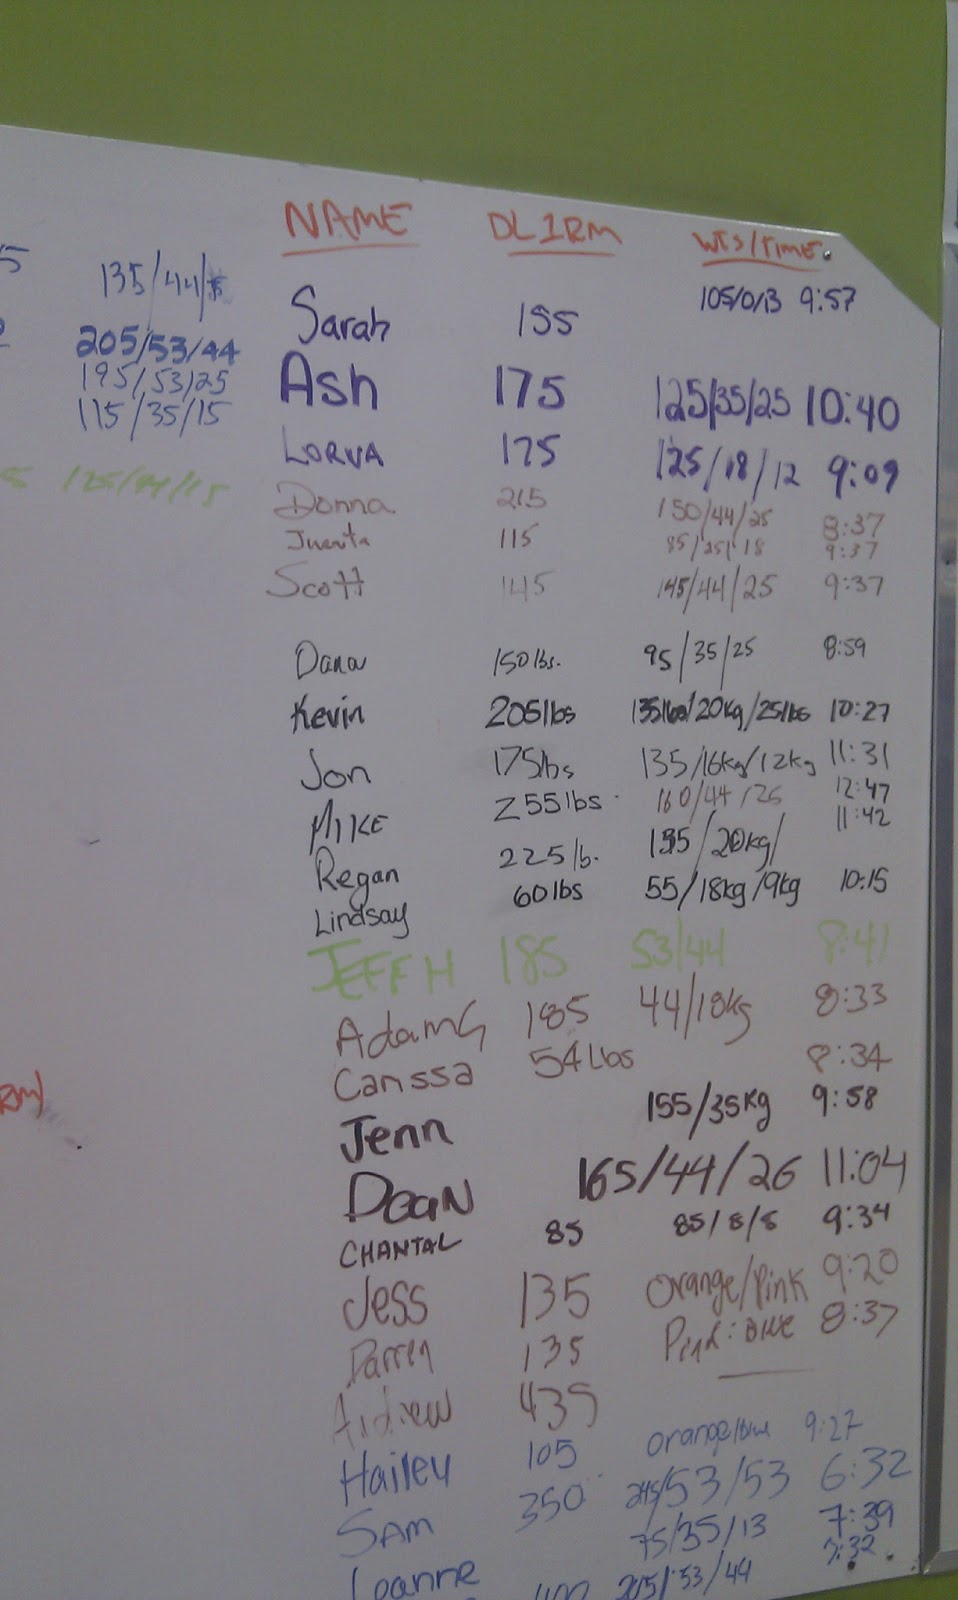 NAME DL1RM WTS/TIME
135/44/
Sarah 155 105/0/13 9:57
205/53/44
195/53/25
115/35/15
Ash 175 125/35/25 10:40
LORVA 175 125/18/12 9:09
125/44/15
Donna 215 150/44/25 8:37
Juanita 115 85/25/18 9:37
Scott 145 145/44/25 9:37
Dana 150lbs. 95/35/25 8:59
Kevin 205lbs 135lbs/20kg/25lbs 10:27
Jon 175lbs 135/16kg/12kg 11:31
MIKE 255lbs 160/44/25 12:47
Regan 225lb. 135/20kg/ 11:42
Lindsay 60lbs 55/18kg/9kg 10:15
JEFF H 185 53/44 8:41
Adam G 185 44/18kg 8:33
Carissa 54Lbs 8:34
RM)
Jenn 155/35kg 9:58
DeaN 165/44/26 11:04
CHANTAL 85 85/8/8 9:34
Jess 135 orange/Pink 9:20
Darren 135 Pink: Blue 8:37
Andrew 435
Hailey 105 orange/blue 9:27
SAM 350 245/53/53 6:32
Leanne 75/35/13 7:39
205/53/44 7:32